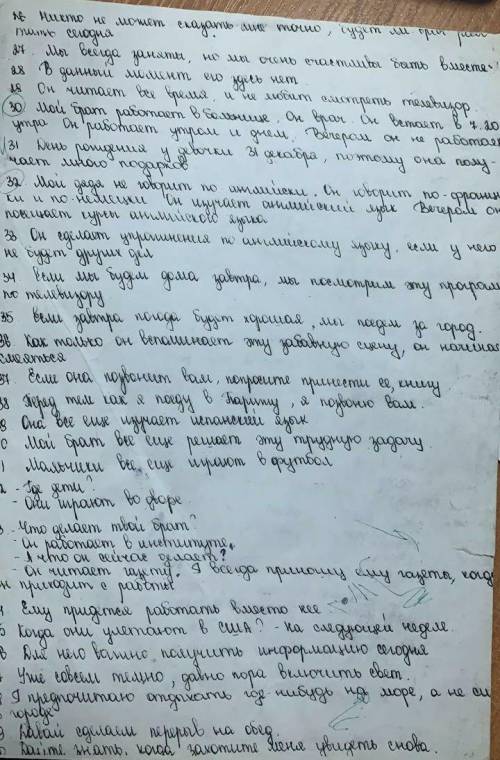 26 Никто не может сказать мне точно, будет ли брат рабо
тать сегодня
27. Мы всегда заняты, но мы очень счастливы быть вместе
28 В данный момент его здесь нет
29 Он читает все время и не любит смотреть телевизор
30 Мой брат работает в больнице. Он врач. Он встает в 7.20
утра Он работает утром и днем. Вечером он не работае
31 День рождения у девочки 31 декабря, поэтому она полу-
чает много подарков
32 Мой дядя не говорит по английски. Он говорит по-францу
ки и по-немецки Он изучает английский язык Вечером он
посещает курсы английского языка
33 Он сделает упражнения по английскому языку, если у него
не будет других дел
34 Если мы будем дома завтра, мы посмотрим эту програм
по телевизору
35 Если завтра погода будет хорошая, мы поедем за город.
36 Как только он вспоминает эту забавную сцену, он начинае
смеяться
37. Если она позвонит вам, попросите принести ее книгу
38 Перед тем как я поеду в , я позвоню вам.
9 Она все еще изучает испанский язык
0 Мой брат все еще решает эту трудную задачу
1 Мальчики все еще играют в футбол
2 - Где дети?
- Они играют во дворе
3 - Что делает твой брат?
- Он работает в институте.
- А что он сейчас делает?
- Он читает газету. Я всегда приношу ему газеты, когда
он приходит с работы
4 Ему придется работать вместо нее
5 Когда они улетают в США? - на следующей неделе.
6 Для него важно получить информацию сегодня
7 Уже совсем темно, давно пора включить свет.
8 Я предпочитаю отдыхать где-нибудь на море, а не си
в городе
9 Давай сделаем перерыв на обед.
0 Дайте знать, когда захотите меня увидеть снова.